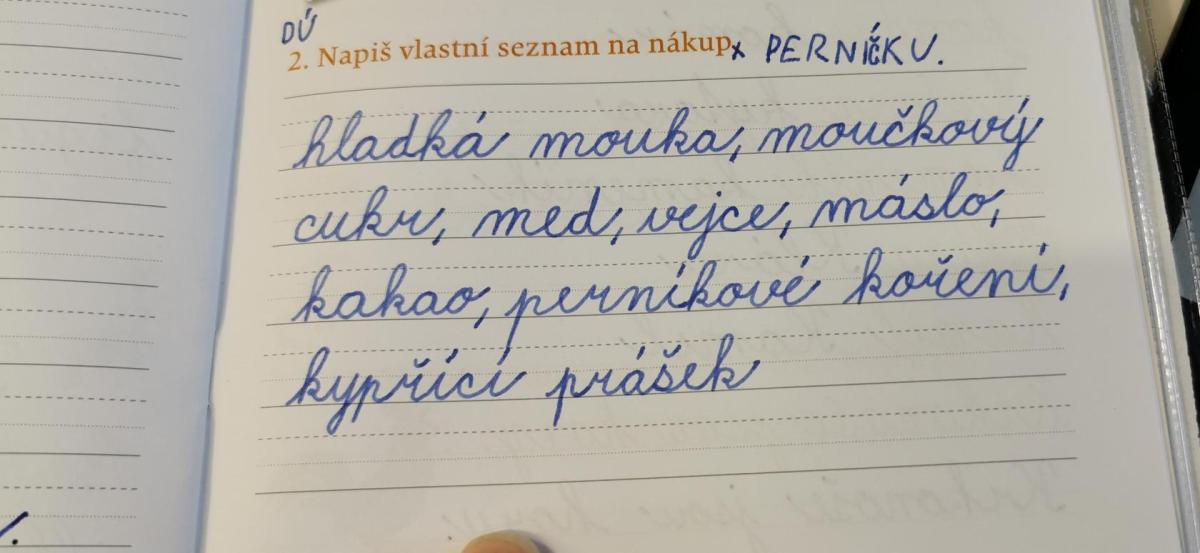 DÚ
2. Napiš vlastní seznam na nákup x PERNÍČKU.
hladká mouka, moučkový
cukr, med, vejce, máslo,
kakao, perníkové koření,
kypřící prášek